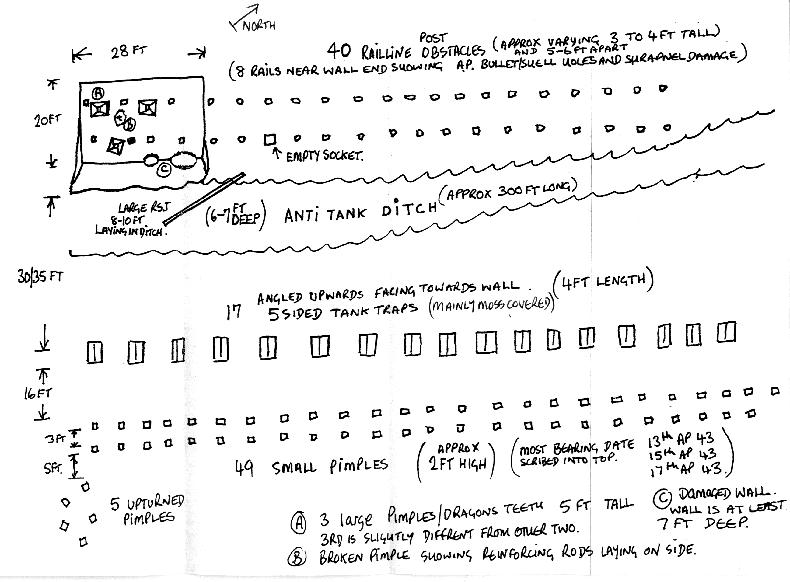 NORTH
28 FT
40 RAILLINE POST OBSTACLES (APPROX VARYING 3 TO 4FT TALL)
AND 5-6FT APART
(8 RAILS NEAR WALL END SHOWING A.P. BULLET/SHELL HOLES AND SHRAPNEL DAMAGE)
A
20FT
B
C
EMPTY SOCKET.
LARGE RSJ
8-10FT
LAYING IN DITCH.
(6-7FT DEEP)
ANTI TANK DITCH (APPROX 300FT LONG)
30/35 FT
ANGLED UPWARDS FACING TOWARDS WALL. (4FT LENGTH)
17 5 SIDED TANK TRAPS (MAINLY MOSS COVERED)
16FT
3FT
5FT
49 SMALL PIMPLES (APPROX 2FT HIGH)
(MOST BEARING DATE 13TH AP 43
SCRIBED INTO TOP. 15TH AP 43
17TH AP 43.)
5 UPTURNED
PIMPLES
A 3 large PIMPLES/DRAGONS TEETH 5 FT TALL
3RD IS SLIGHTLY DIFFRENT FROM OTHER TWO.
B BROKEN PIMPLE SHOWING REINFORCING RODS LAYING ON SIDE.
C DAMAGED WALL.
WALL IS AT LEAST
7 FT DEEP.